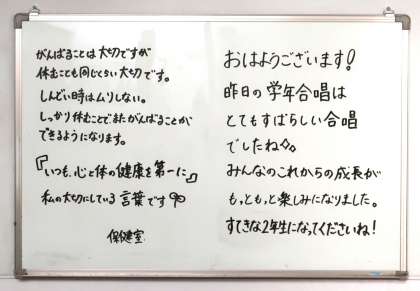 がんばることは大切ですが
休むことも同じくらい大切です。
しんどい時はムリしない。
しっかり休むことでまたがんばることが
できるようになります。
『いつも、心と体の健康を第一に』
私の大切にしている言葉です
保健室
おはようございます!
昨日の学年合唱は
とてもすばらしい合唱
でしたね◇。
みんなのこれからの成長が
もっともっと楽しみになりました。
すてきな2年生になってくださいね!